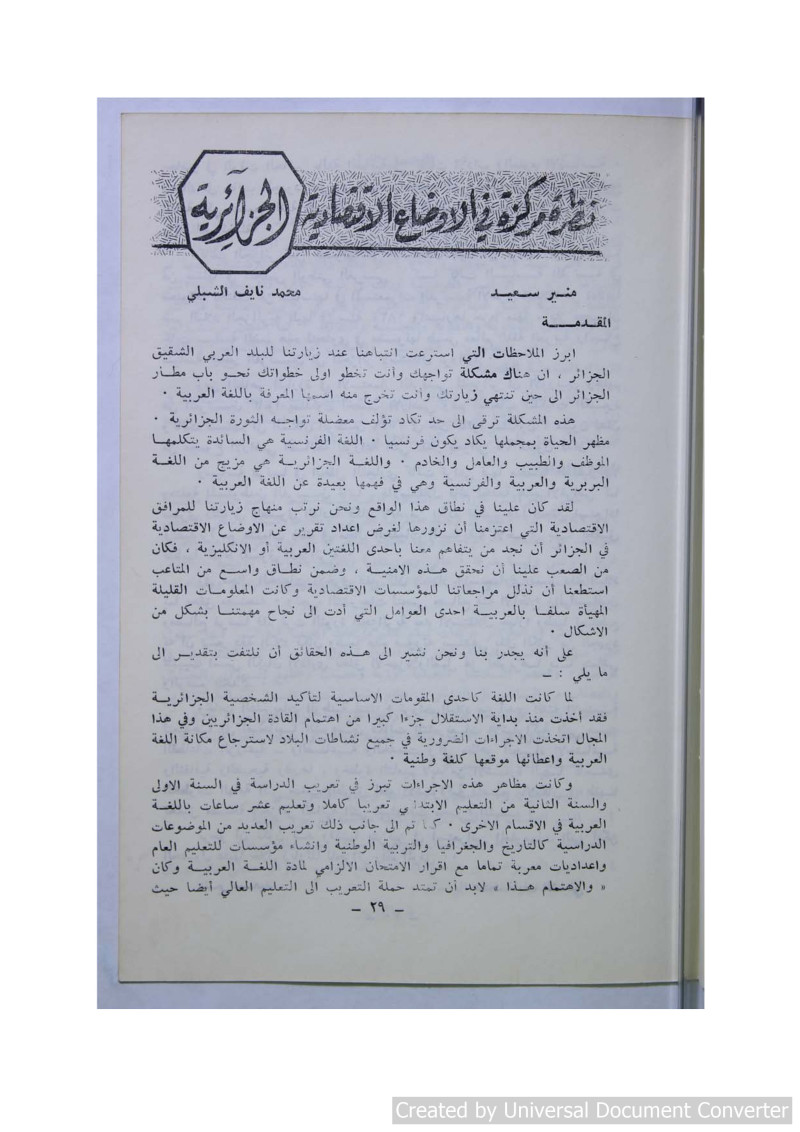 نظرة مركزة في الاوضاع الاقتصادية الجزائرية
منير سعيد
محمد نايف الشبلي
المقدمة
ابرز الملاحظات التي استرعت انتباهنا عند زيارتنا للبلد العربي الشقيق
الجزائر ، ان هناك مشكلة تواجهك وأنت تخطو اولى خطواتك نحو باب مطار
الجزائر الى حين تنتهي زيارتك وأنت تخرج منه اسمها المعرفة باللغة العربية ٠
هذه المشكلة ترقى الى حد تكاد تؤلف معضلة تواجه الثورة الجزائرية ٠
مظهر الحياة بمجملها يكاد يكون فرنسيا ٠ اللغة الفرنسية هي السائدة يتكلمها
الموظف والطبيب والعامل والخادم ٠ واللغة الجزائرية هي مزيج من اللغة
البربرية والعربية والفرنسية وهي في فهمها بعيدة عن اللغة العربية ٠
لقد كان علينا في نطاق هذا الواقع ونحن نرتب منهاج زيارتنا للمرافق
الاقتصادية التي اعتزمنا أن نزورها لغرض اعداد تقرير عن الاوضاع الاقتصادية
في الجزائر أن نجد من يتفاهم معنا باحدى اللغتين العربية أو الانكليزية ، فكان
من الصعب علينا أن نحقق هذه الامنية ، وضمن نطاق واسع من المتاعب
استطعنا أن نذلل مراجعاتنا للمؤسسات الاقتصادية وكانت المعلومات القليلة
المهيأة سلفا بالعربية احدى العوامل التي أدت الى نجاح مهمتنا بشكل من
الاشكال ٠
على أنه يجدر بنا ونحن نشير الى هذه الحقائق أن نلتفت بتقدير الى
ما يلي : ــ
لما كانت اللغة كاحدى المقومات الاساسية لتأكيد الشخصية الجزائرية
فقد أخذت منذ بداية الاستقلال جزءا كبيرا من اهتمام القادة الجزائريين وفي هذا
المجال اتخذت الاجراءات الضرورية في جميع نشاطات البلاد لاسترجاع مكانة اللغة
العربية واعطائها موقعها كلغة وطنية ٠
وكانت مظاهر هذه الاجراءات تبرز في تعريب الدراسة في السنة الاولى
والسنة الثانية من التعليم الابتدائي تعريبا كاملا وتعليم عشر ساعات باللغة
العربية في الاقسام الاخرى ٠ كما تم الى جانب ذلك تعريب العديد من الموضوعات
الدراسية كالتاريخ والجغرافيا والتربية الوطنية وانشاء مؤسسات للتعليم العام
واعداديات معربة تماما مع اقرار الامتحان الالزامي لمادة اللغة العربية وكان
« والاهتمام هذا » لابد أن تمتد حملة التعريب الى التعليم العالي أيضا حيث
ـ ٢٩ ـ
Created by Universal Document Converter